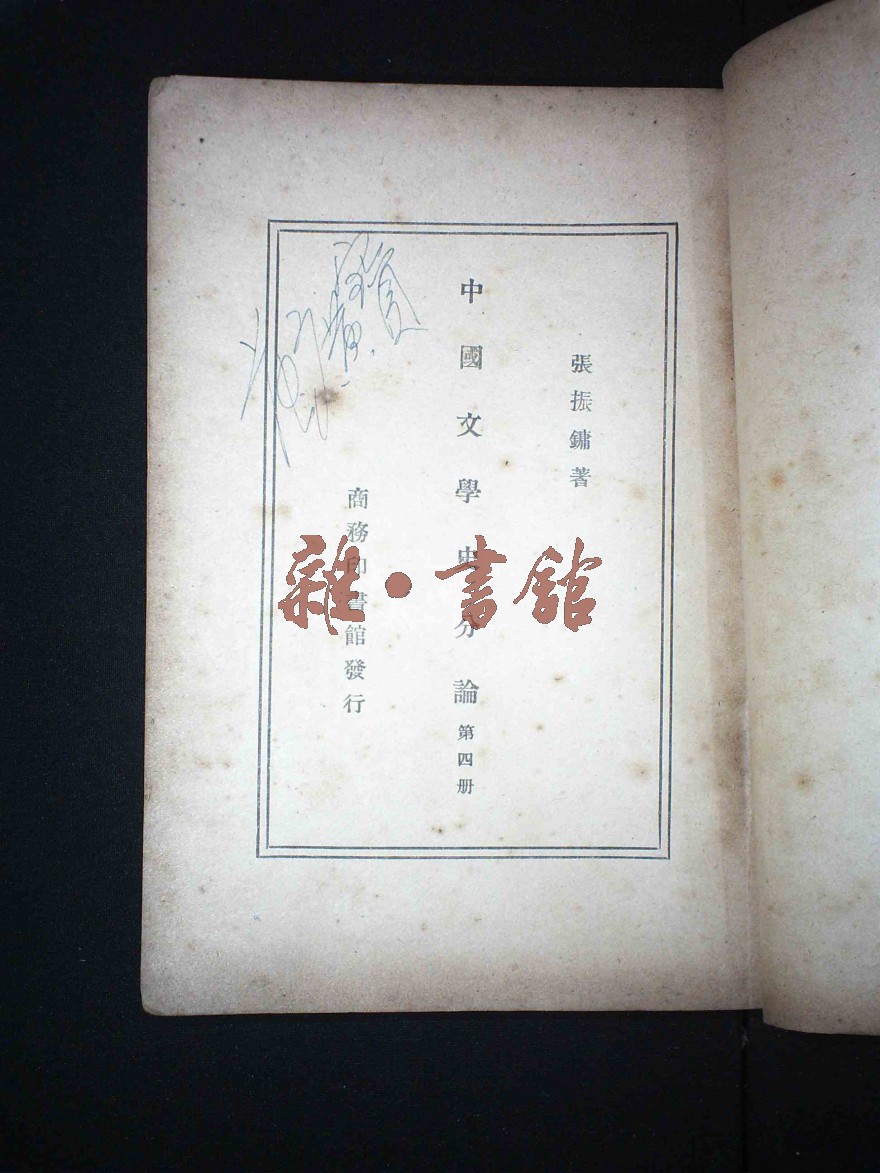 張振鏞著
中國文學史分論 第四册
商務印書館發行
雜·書館